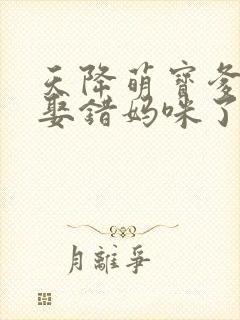 天降萌寶爹
娶錯媽咪了
月離爭